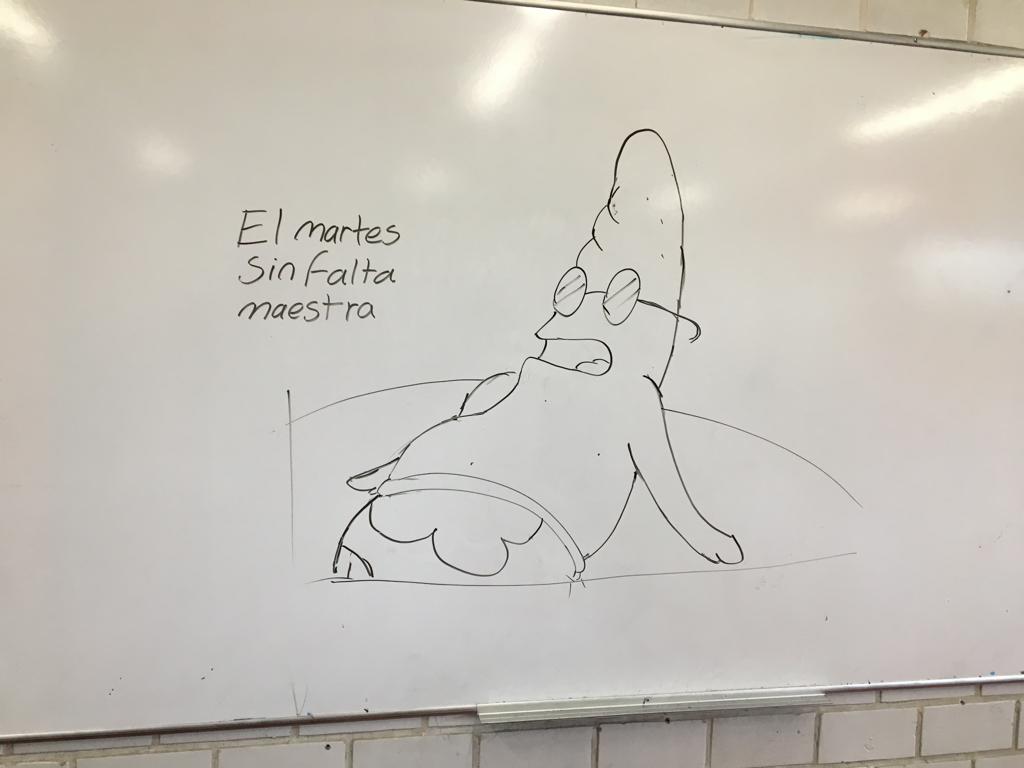 El martes
Sin falta
maestra